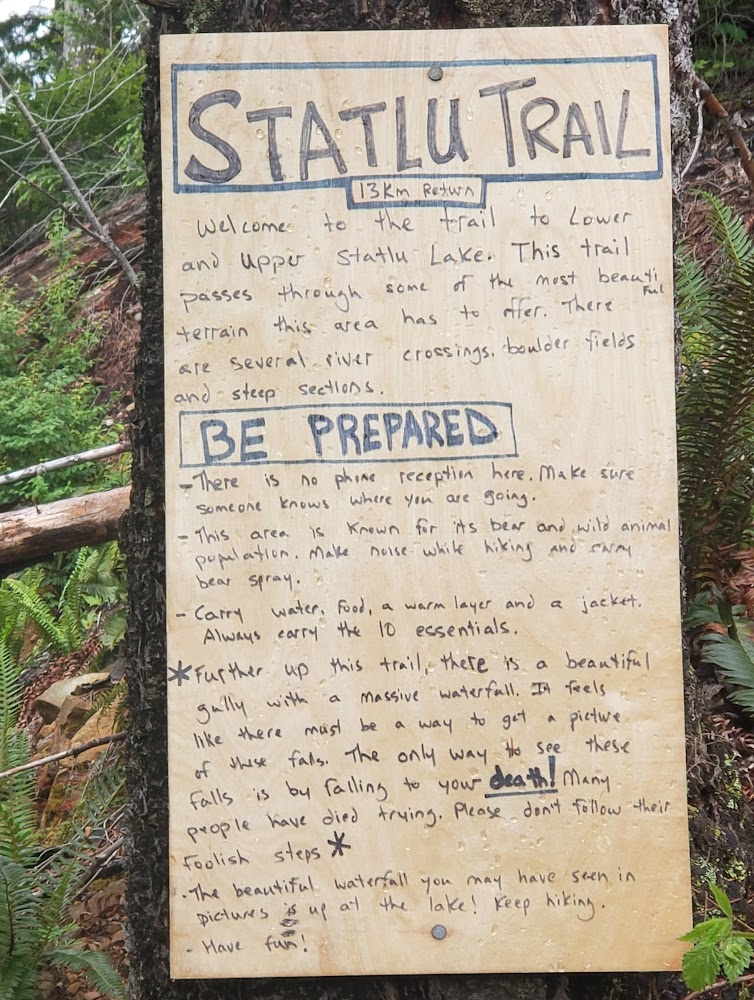 STATLU TRAIL
13Km Return
Welcome to the trail to Lower
and Upper Statlu Lake. This trail
passes through some of the most beautiful
terrain this area has to offer. There
are several river crossings. boulder fields
and steep sections.
BE PREPARED
- There is no phone reception here. Make sure
someone knows where you are going.
- This area is known for its bear and wild animal
population. Make noise while hiking and carry
bear spray.
- Carry water, food, a warm layer and a jacket.
Always carry the 10 essentials.
* Further up this trail, there is a beautiful
gully with a massive waterfall. It feels
like there must be a way to get a picture
of these falls. The only way to see these
falls is by falling to your death! Many
people have died trying. Please don't follow their
foolish steps *
- The beautiful waterfall you may have seen in
pictures is up at the lake! Keep hiking.
- Have fun!